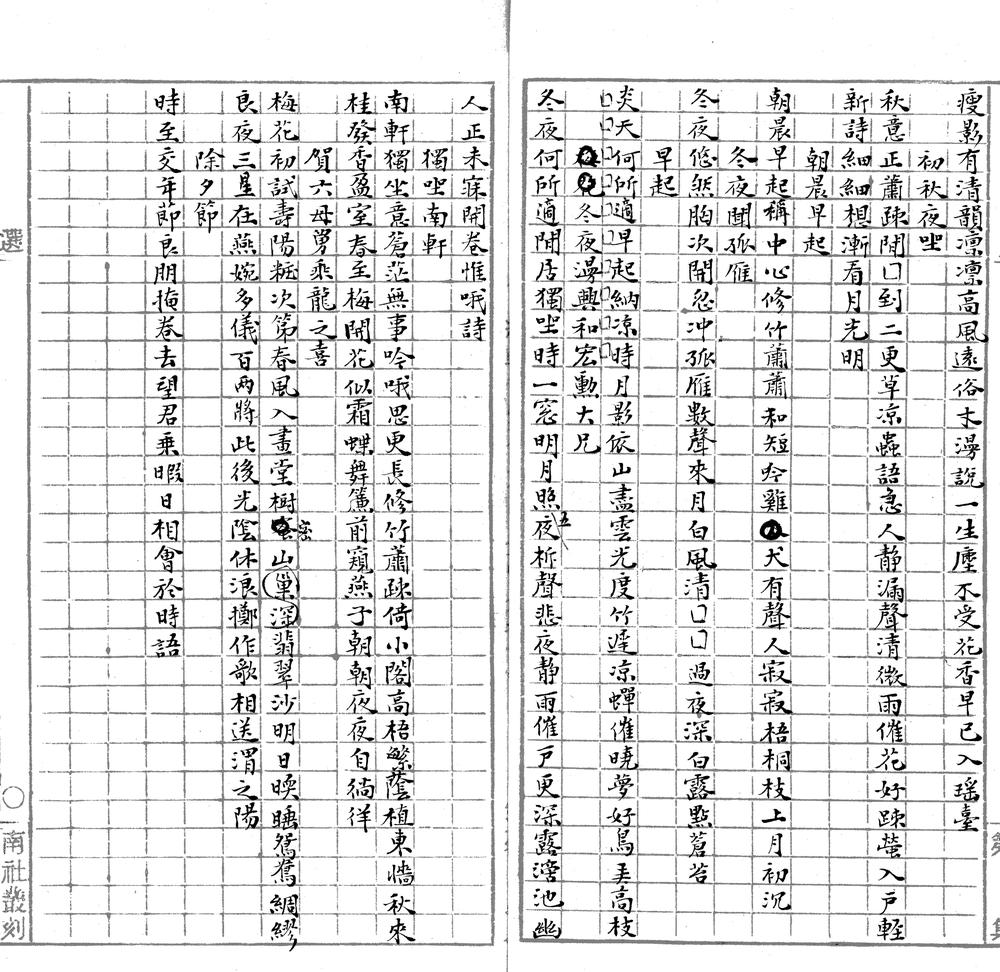 瘦影有清韻凜凜高風遠俗木漫說一生塵不受花香早已入瑶臺
初秋夜坐
秋意正蕭疎閒口到二更草凉蟲語急人靜漏聲清微雨催花好疎螢入戶輕
新詩細細想漸看月光明
朝晨早起
朝晨早起稱中心修竹蕭蕭和短吟雞犬有聲人寂寂梧桐枝上月初沉
冬夜聞孤雁
冬夜悠然胸次開忽冲孤雁數聲來月白風清口口過夜深白露點蒼苔
早起
炎天何所適早起納凉時月影依山盡雲光度竹遲凉蟬催曉夢好鳥弄高枝
冬夜漫興和宏勳大兄
冬夜何所適閒居獨坐時一窓明月照五夜柝聲悲夜静雨催戶更深露滴池幽
人正未寐開卷惟哦詩
獨坐南軒
南軒獨坐意蒼茫無事吟哦思更長修竹蕭疎倚小閣高梧繁蔭植東墻秋來
桂發香盈室春至梅開花似霜蝶舞簾前窺燕子朝朝夜夜自徜徉
賀六母舅乘龍之喜
梅花初試壽陽粧次第春風入畫堂樹密山巢深翡翠沙明日暎睡鴛鴦綢繆
良夜三星在燕婉多儀百兩將此後光陰休浪擲作歌相送渭之陽
除夕節
時至交年節良朋掩卷去望君乘暇日相會於時語
選
南社叢刻